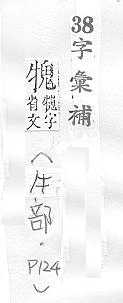 38
字彙補
字
省文
（牛部．P124）